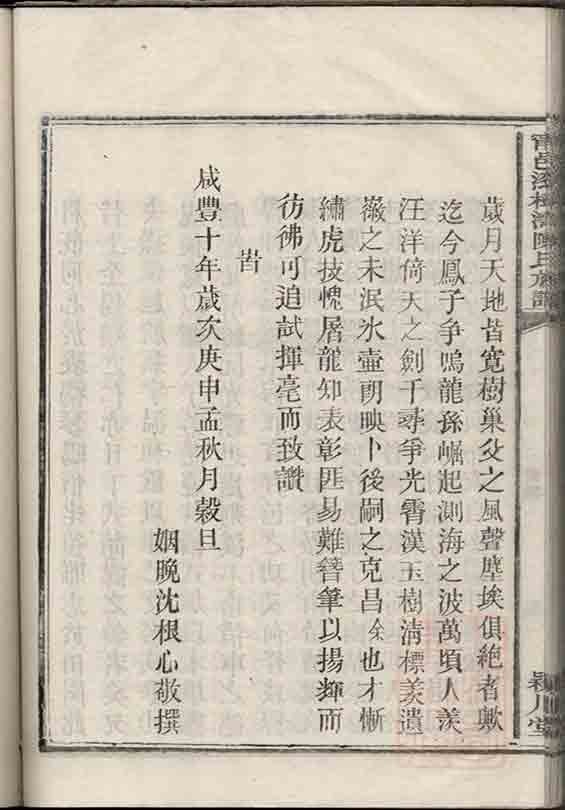 歲月天地皆寬樹巢父之風聲塵埃俱絶者歟
迄今鳳子爭鳴龍孫崛起測海之波萬頃人羨
汪洋倚天之劍千尋爭光霄漢玉樹清標羨遺
徽之未泯氷壺朗映卜後嗣之克昌余也才慚
繡虎技愧屠龍知表彰匪易難簪筆以揚輝而
彷彿可追試揮毫而致讚
旹
咸豐十年歲次庚申孟秋月榖旦
姻晚沈根心敬撰
陳氏族譜
潁川堂